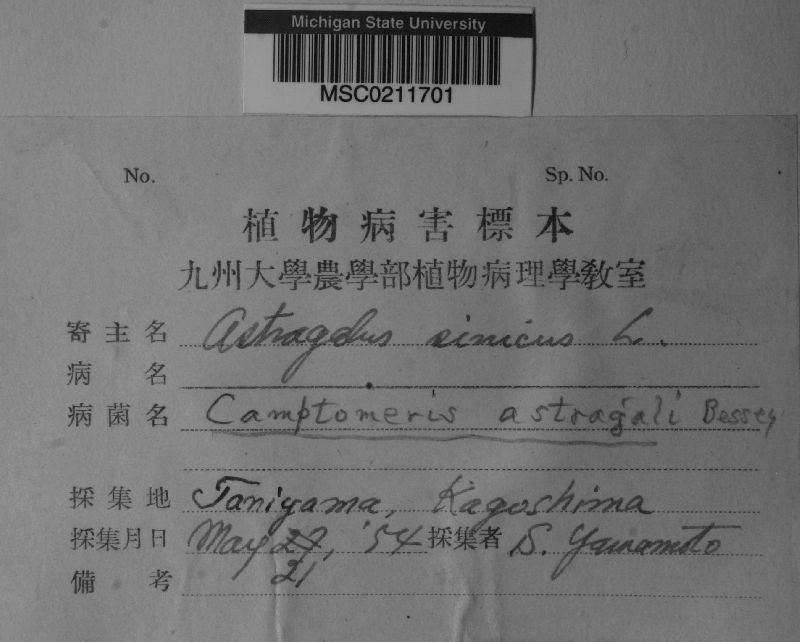 Michigan State University
MSC0211701
No. Sp. No.
植物病害標本
九州大學農學部植物病理學教室
寄主名 Astragalus sinicus L.
病名
病菌名 Camptomeris astragali Bessey
採集地 Taniyama, Kagoshima
採集月日 May 27, '54 採集者 S. Yamamoto
21
備考